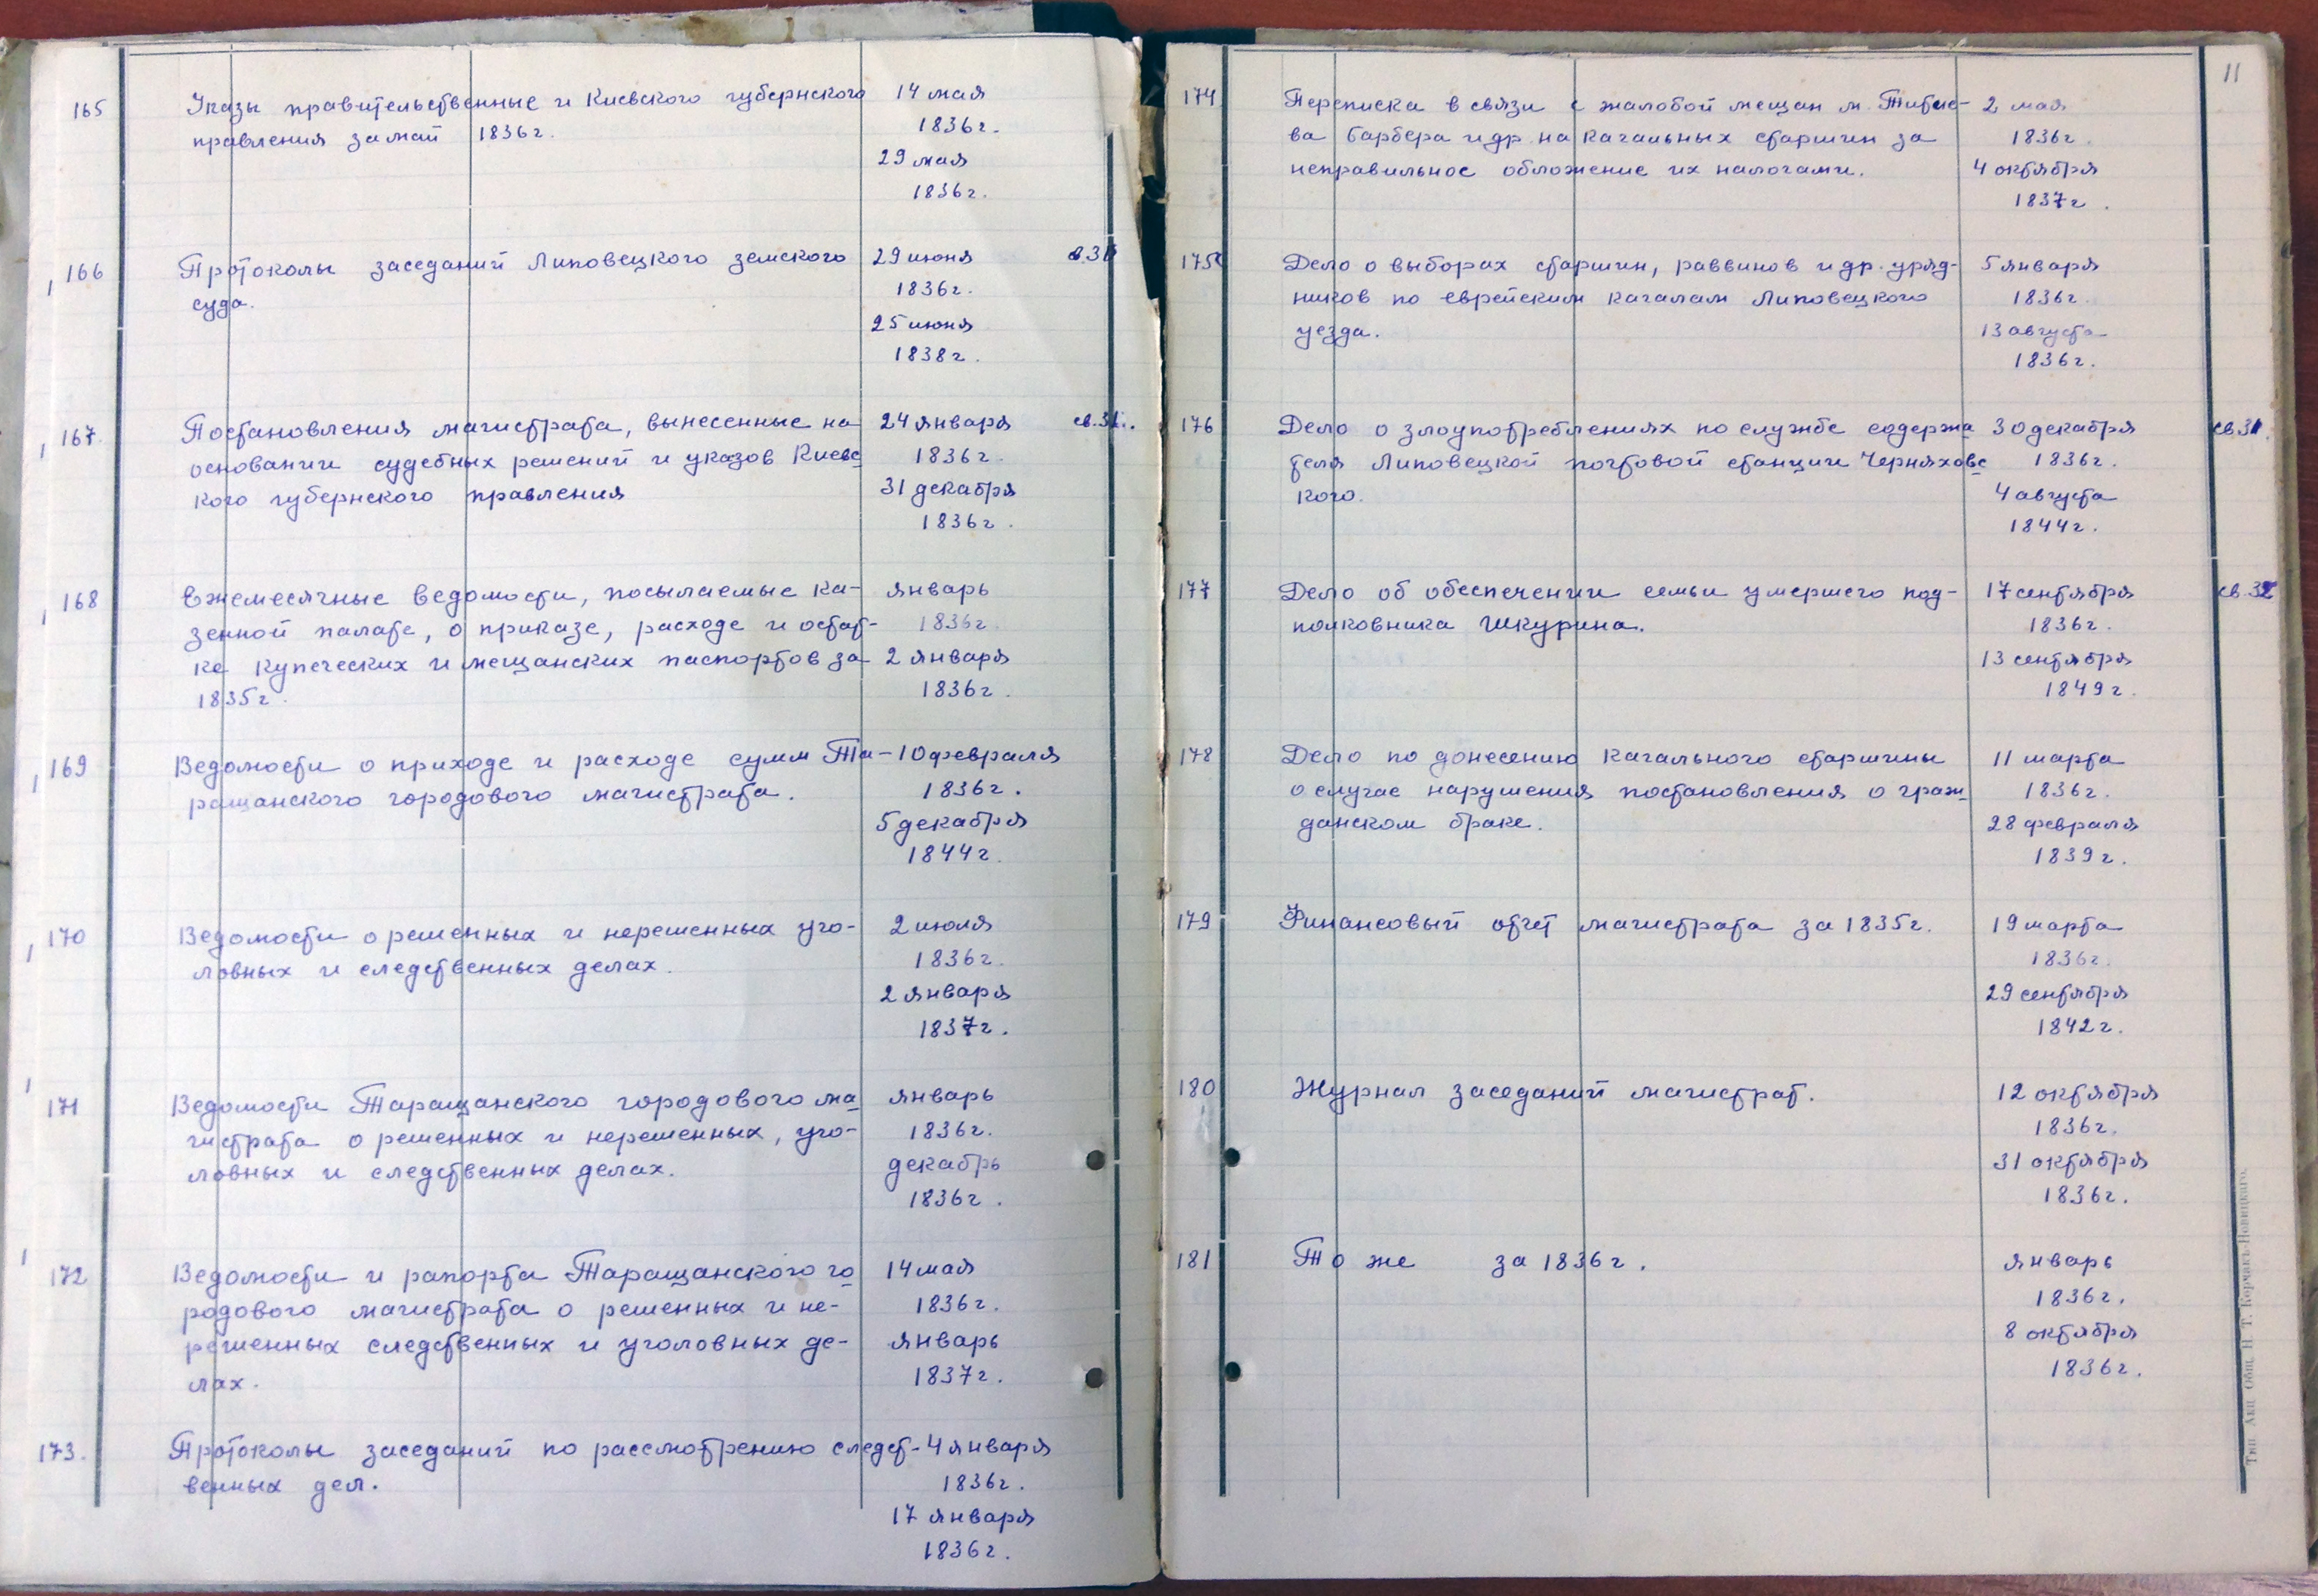 165 Указы правительственные и Киевского губернского 14 мая
правления за май 1836г. 1836г.
29 мая
1836г.
166 Протоколы заседаний Липовецкого земского 29 июня
суда. 1836г.
25 июня
1838г.
167. Постановления магистрата, вынесенные на 24 января св.31.
основании судебных решений и указов Киевс- 1836г.
кого губернского правления 31 декабря
1836г.
168 Ежемесячные ведомости, посылаемые ка- январь
зенной палате, о приказе, расходе и остат- 1836г.
ке купеческих и мещанских паспортов за 2 января
1835г. 1836г.
169 Ведомости о приходе и расходе сумм Та- 10 февраля
ращанского городового магистрата. 1836г.
5 декабря
1844г.
170 Ведомости о решенных и нерешенных уго- 2 июля
ловных и следственных делах. 1836г.
2 января
1837г.
171 Ведомости Таращанского городового ма- январь
гистрата о решенных и нерешенных, уго- 1836г.
ловных и следственных делах. декабрь
1836г.
172 Ведомости и рапорта Таращанского го- 14 мая
родового магистрата о решенных и не- 1836г.
решенных следственных и уголовных де- январь
лах. 1837г.
173. Протоколы заседаний по рассмотрению следст- 4 января
венных дел. 1836г.
17 января
1836г.
11
174 Переписка в связи с жалобой мещан м. Титие- 2 мая
ва Барбера и др. на кагальных старшин за 1836г.
неправильное обложение их налогами. 4 октября
1837г.
175 Дело о выборах старшин, раввинов и др. уряд- 5 января
ников по еврейским кагалам Липовецкого 1836г.
уезда. 13 августа
1836г.
176 Дело о злоупотреблениях по службе содержа- 30 декабря св.31.
теля Липовецкой почтовой станции Черняховс- 1836г.
кого. 4 августа
1844г.
177 Дело об обеспечении семьи умершего под- 17 сентября св.32
полковника Шкурина. 1836г.
13 сентября
1849г.
178 Дело по донесению кагального старшины 11 марта
о случае нарушения постановления о граж- 1836г.
данском браке. 28 февраля
1839г.
179 Финансовый отчет магистрата за 1835г. 19 марта
1836г.
29 сентября
1842г.
180 Журнал заседаний магистрат. 12 октября
1836г.
31 октября
1836г.
181 То же за 1836г. январь
1836г.
8 октября
1836г.
Тип. Акц. Общ. Н. Т. Корчакъ-Новицкаго.